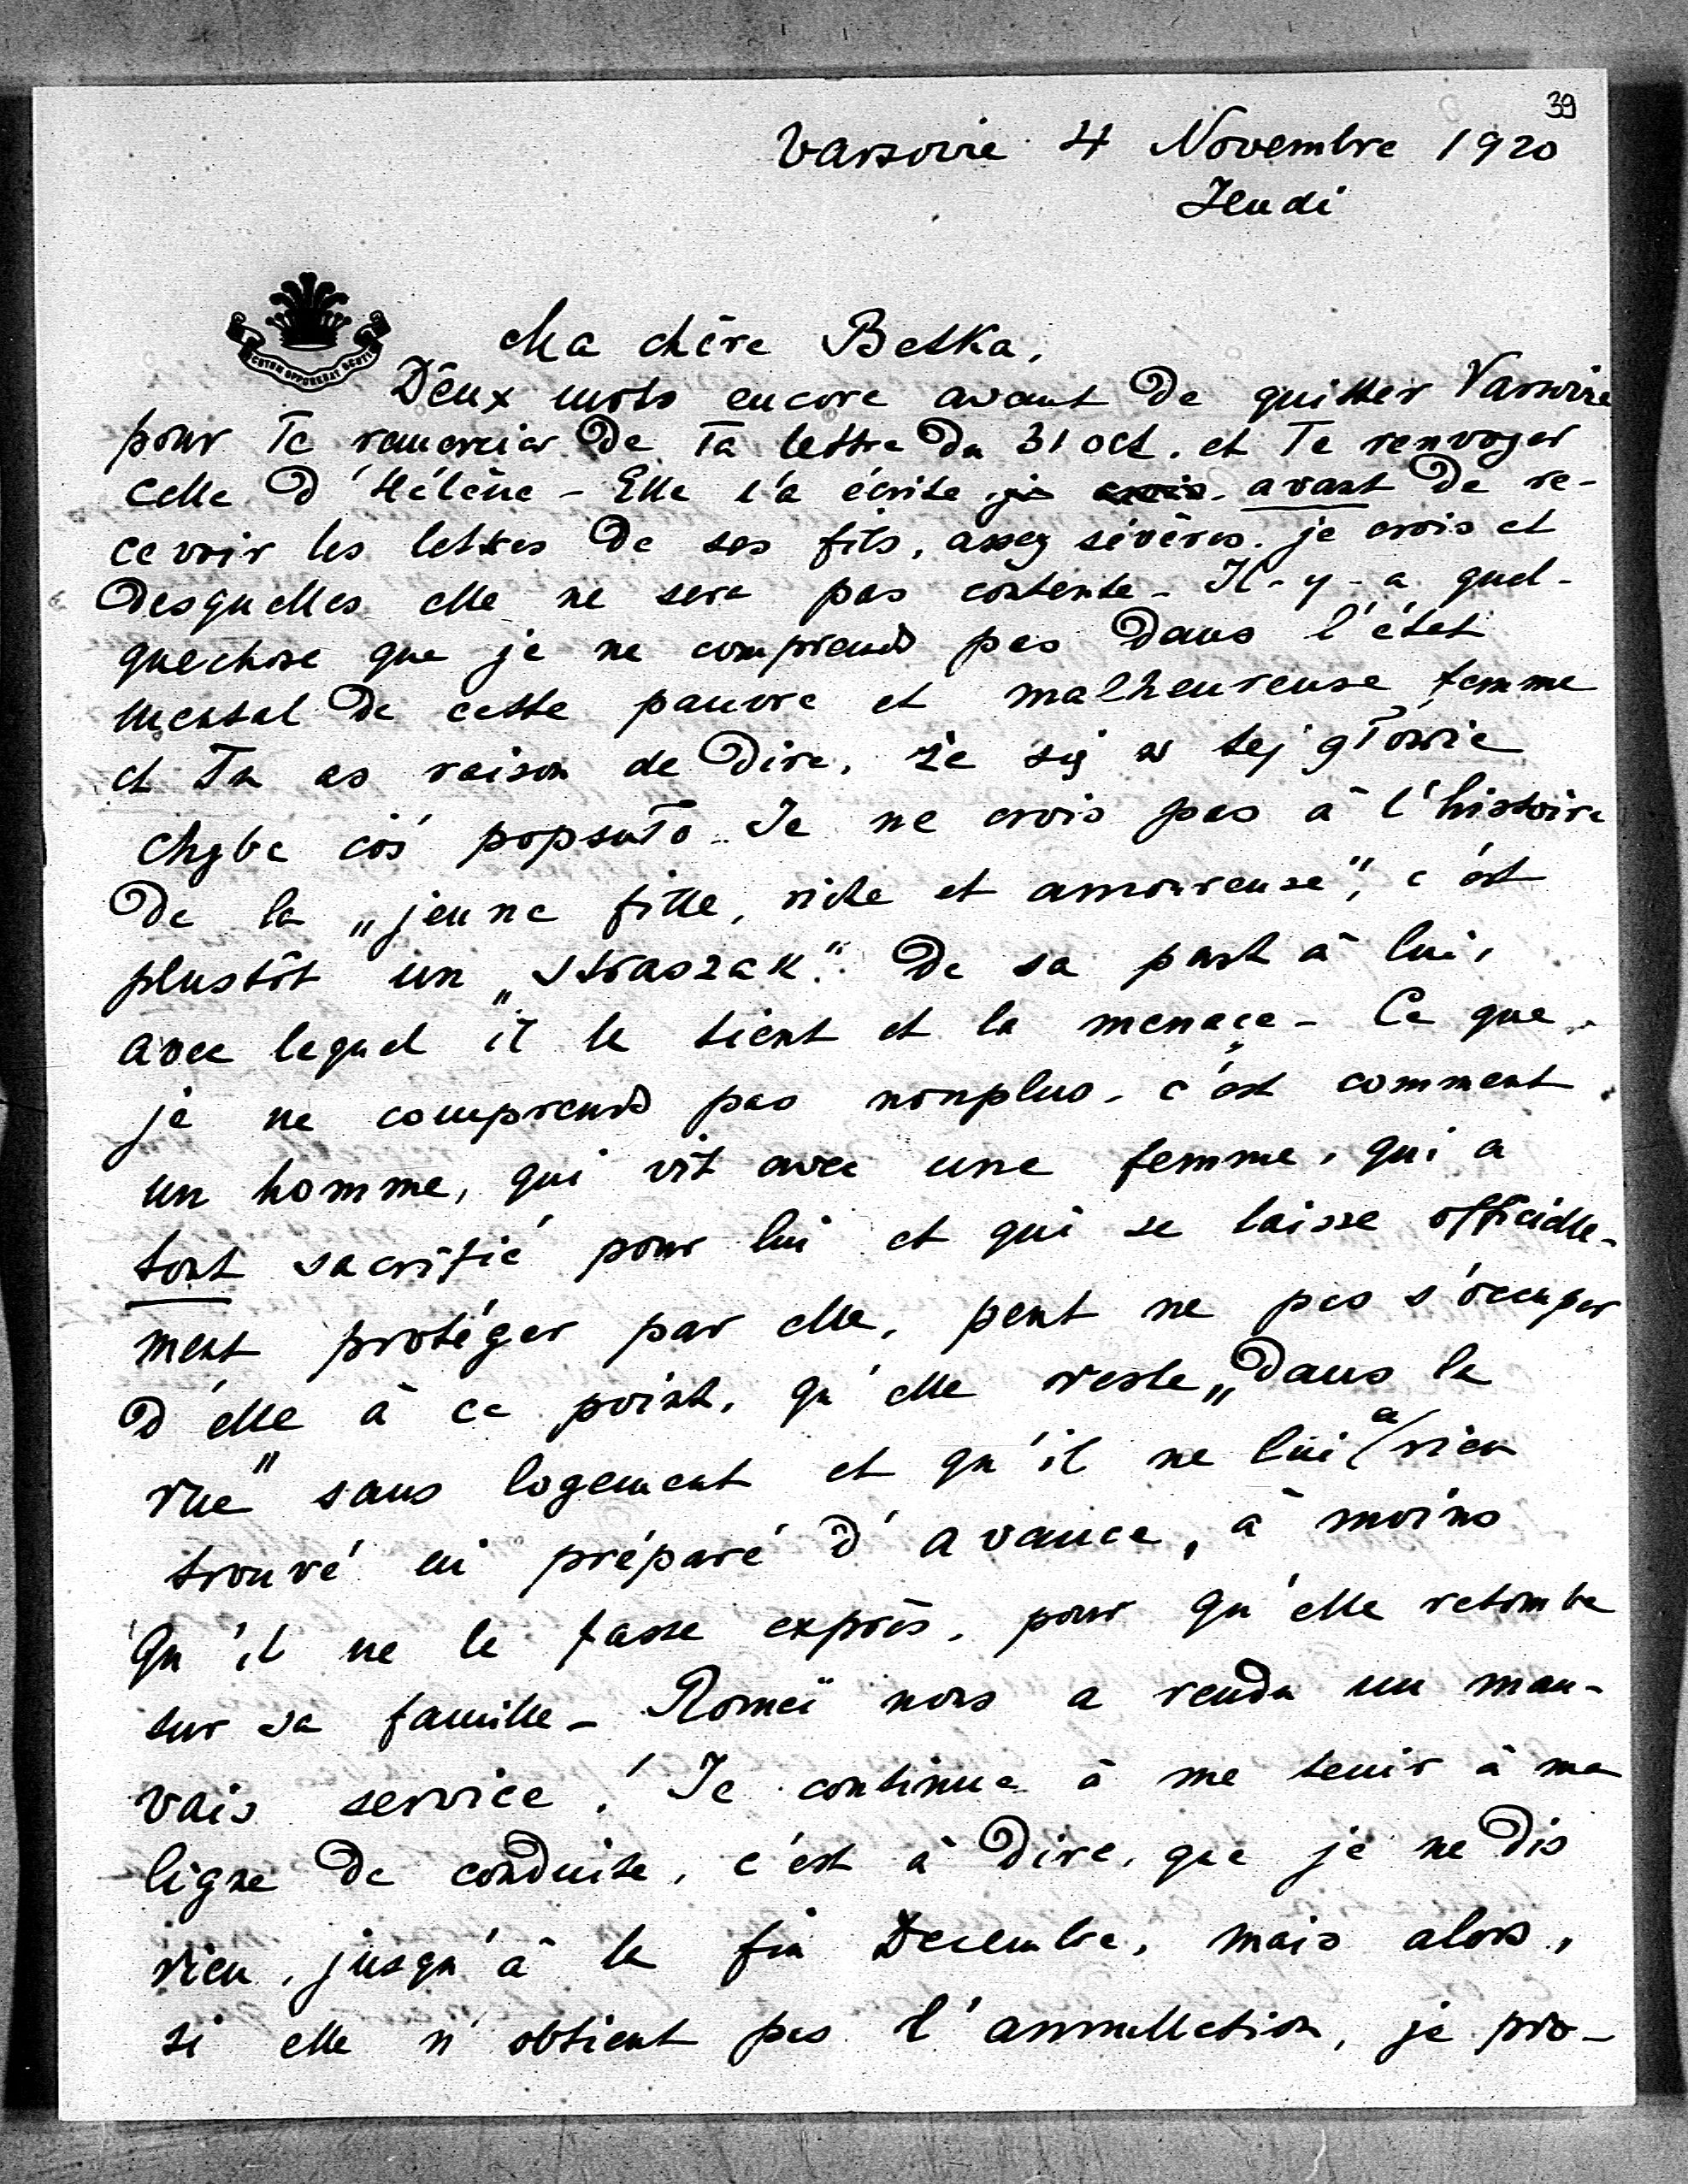 39
Varsovie 4 Novembre 1920
Jeudi
Ma chère Betka,
Deux mots encore avant de quitter Varsovie
pour Te remercier de Ta lettre du 31 oct. et Te renvoyer
celle d'Hélène - Elle l'a écrite avant de re-
cevoir les lettres de ses fils, assez sévères, je crois et
desquelles elle ne sera pas contente - Il-y-a quel-
quechose que je ne comprends pas dans l'état
mental de cette pauvre et malheureuse femme
et Tu as raison de dire, że się w tej głowie
chyba cóś popsuło - Je ne crois pas à l'histoire
de la „jeune fille, riche et amoureuse", c'est
plustôt un „straszak" de sa part à lui,
avec lequel il le tient et la menaçe - Ce que
je ne comprends pas nonplus, c'est comment
un homme, qui vit avec une femme, qui a
tout sacrifié pour lui et qui se laisse officielle-
ment protéger par elle, peut ne pas s'occuper
d'elle à ce point, qu'elle reste „dans la
rue" sans logement et qu'il ne lui a rien
trouvé ni préparé d'avance, à moins
qu'il ne le fasse exprès, pour qu'elle retombe
sur sa famille - Romeï nous a rendu un mau-
vais service! Je continue à me tenir à ma
ligne de conduite, c'est à dire, que je ne dis
rien, jusqu'à la fin Decembre, mais alors,
si elle n'obtient pas l'annullation, je pro-